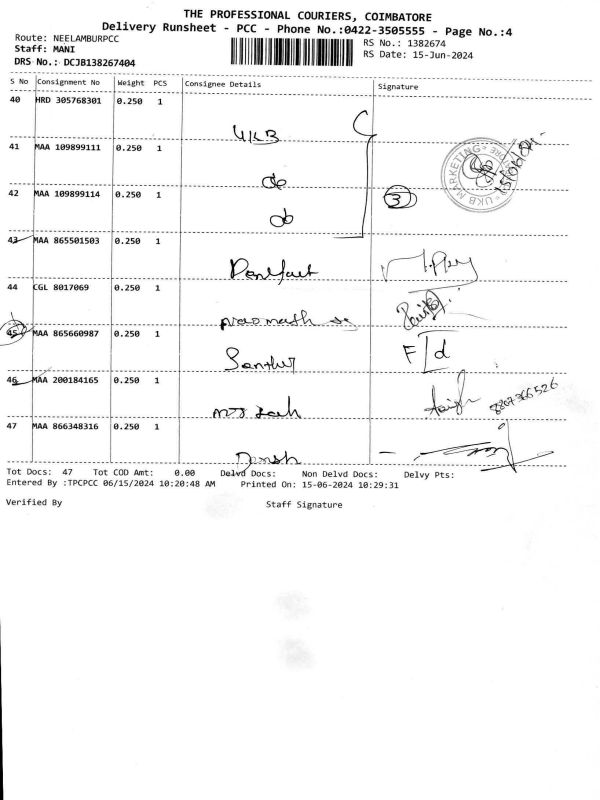 THE PROFESSIONAL COURIERS, COIMBATORE
Delivery Runsheet - PCC - Phone No.:0422-3505555 - Page No.:4
Route: NEELAMBURPCC RS No.: 1382674
Staff: MANI RS Date: 15-Jun-2024
DRS No.: DCJB138267404
S No Consignment No Weight PCS Consignee Details Signature
40 HRD 305768301 0.250 1
UKB
41 MAA 109899111 0.250 1
do
UKB MARKETING
42 MAA 109899114 0.250 1
3
do
43 MAA 865501503 0.250 1
44 CGL 8017069 0.250 1
45 MAA 865660987 0.250 1
F d
46 MAA 200184165 0.250 1
8807366526
47 MAA 866348316 0.250 1
Tot Docs: 47 Tot COD Amt: 0.00 Delvd Docs: Non Delvd Docs: Delvy Pts:
Entered By :TPCPCC 06/15/2024 10:20:48 AM Printed On: 15-06-2024 10:29:31
Verified By Staff Signature